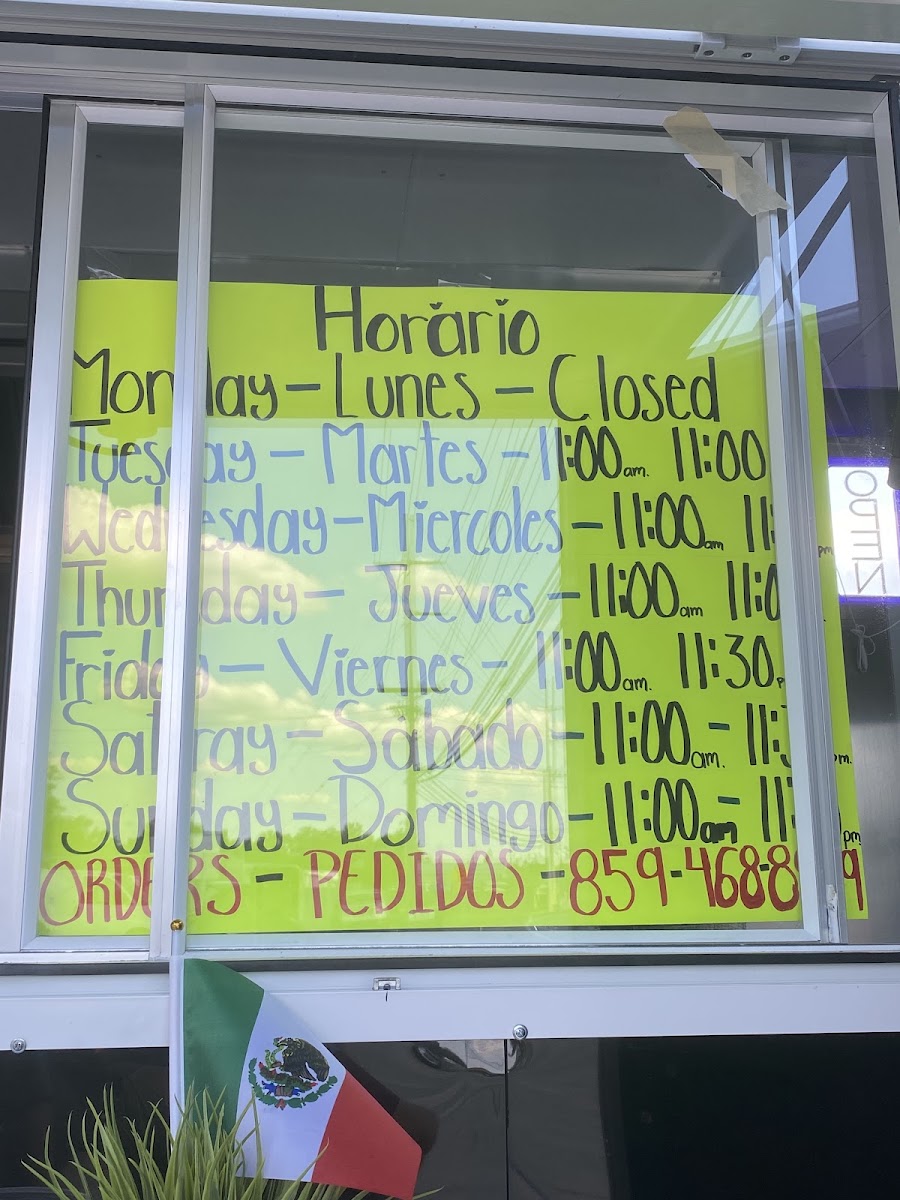 Horario
Monday - Lunes - Closed
Tuesday - Martes - 11:00 am. 11:00
Wednesday - Miercoles - 11:00 am 11: pm
Thursday - Jueves - 11:00 am 11:0
Friday - Viernes - 11:00 am. 11:30 p
Saturay - Sábado - 11:00 am. - 11:3 pm.
Sunday - Domingo - 11:00 am - 11: pm
ORDERS - PEDIDOS - 859-468-8 9